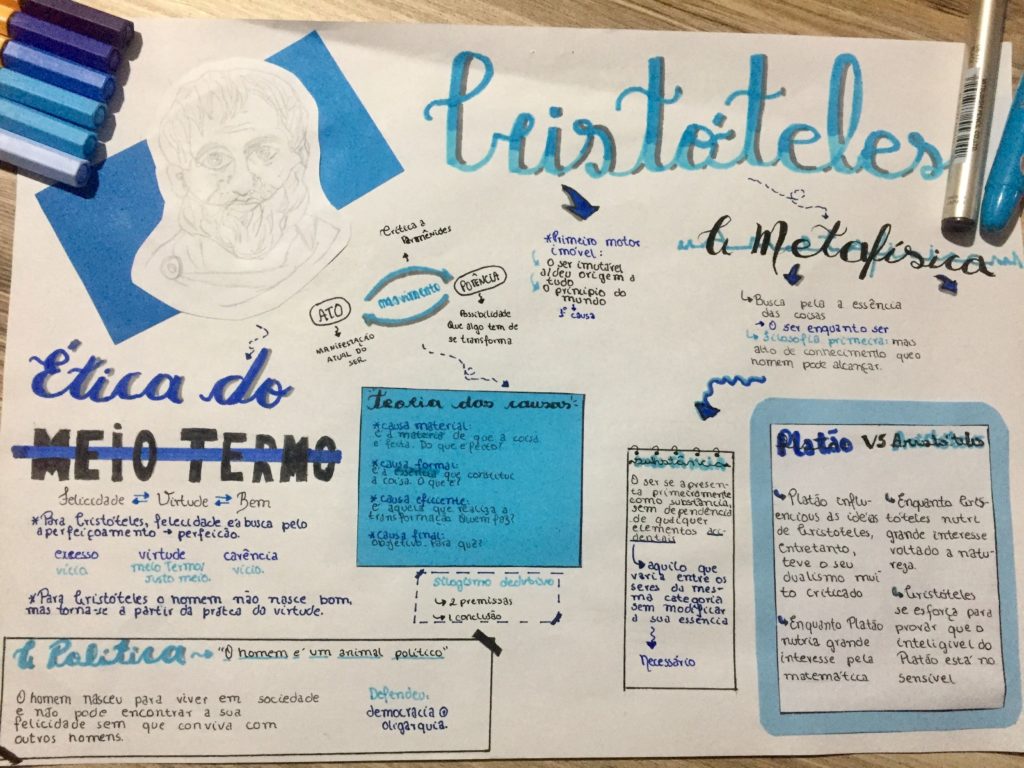 Aristóteles
Crítica a
Parmênides
ATO
movimento
POTÊNCIA
MANIFESTAÇÃO
ATUAL DO
SER.
Possibilidade
Que algo tem de
se transforma
*Primeiro motor
imóvel:
O ser imutável
a/deu origem a
tudo
O princípio do
mundo
1ª causa
A Metafísica
Busca pela a essência
das coisas
O ser enquanto ser
Filosofia primeira: mas
alto de conhecimento que o
homem pode alcançar.
Ética do
MEIO TERMO
Felicidade ⇄ Virtude ⇄ Bem
*Para Aristóteles, felecidade é a busca pelo
aperfeiçoamento → perfeição.
excesso virtude carência
vício. meio termo/ vício.
justo meio.
*Para Aristóteles o homem não nasce bom,
mas torna-se a partir da prática da virtude.
Teoria das causas:
*causa material:
é a matéria de que a coisa
é feita. Do que é feito?
*causa formal:
é a essência que constitui
a coisa. O que é?
*causa eficiente:
é aquela que realiza a
transformação. Quem fez?
*causa final:
objetivo. Para quê?
Silogismo dedutivo
2 premissas
1 conclusão
substância
O ser se apresen-
ta primeiramente
como substância,
sem dependência
de qualquer
elementos aci-
dentais
aquilo que
varia entre os
seres da mes-
ma categoria
sem modificar
a sua essência
Necessário
Platão VS Aristóteles
Platão influ-
encious as ideias
de Aristóteles,
Entretanto,
teve o seu
dualismo mui
to criticado
Enquanto Platão
nutria grande
interesse pela
matemática
Enquanto Aris-
tóteles nutri
grande interesse
voltado a natu-
reza.
Aristóteles
se esforça para
provar que o
inteligível do
Platão está no
sensível
A Política → "O homem é um animal político"
O homem nasceu para viver em sociedade
e não pode encontrar a sua
felicidade sem que conviva com
outros homens.
Defendeu:
democracia e
oligarquia.